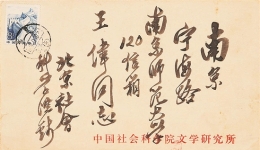 南京
宁海路
南京师范大学
120信箱
王伟同志
北京社会
中国社会科学院文学研究所